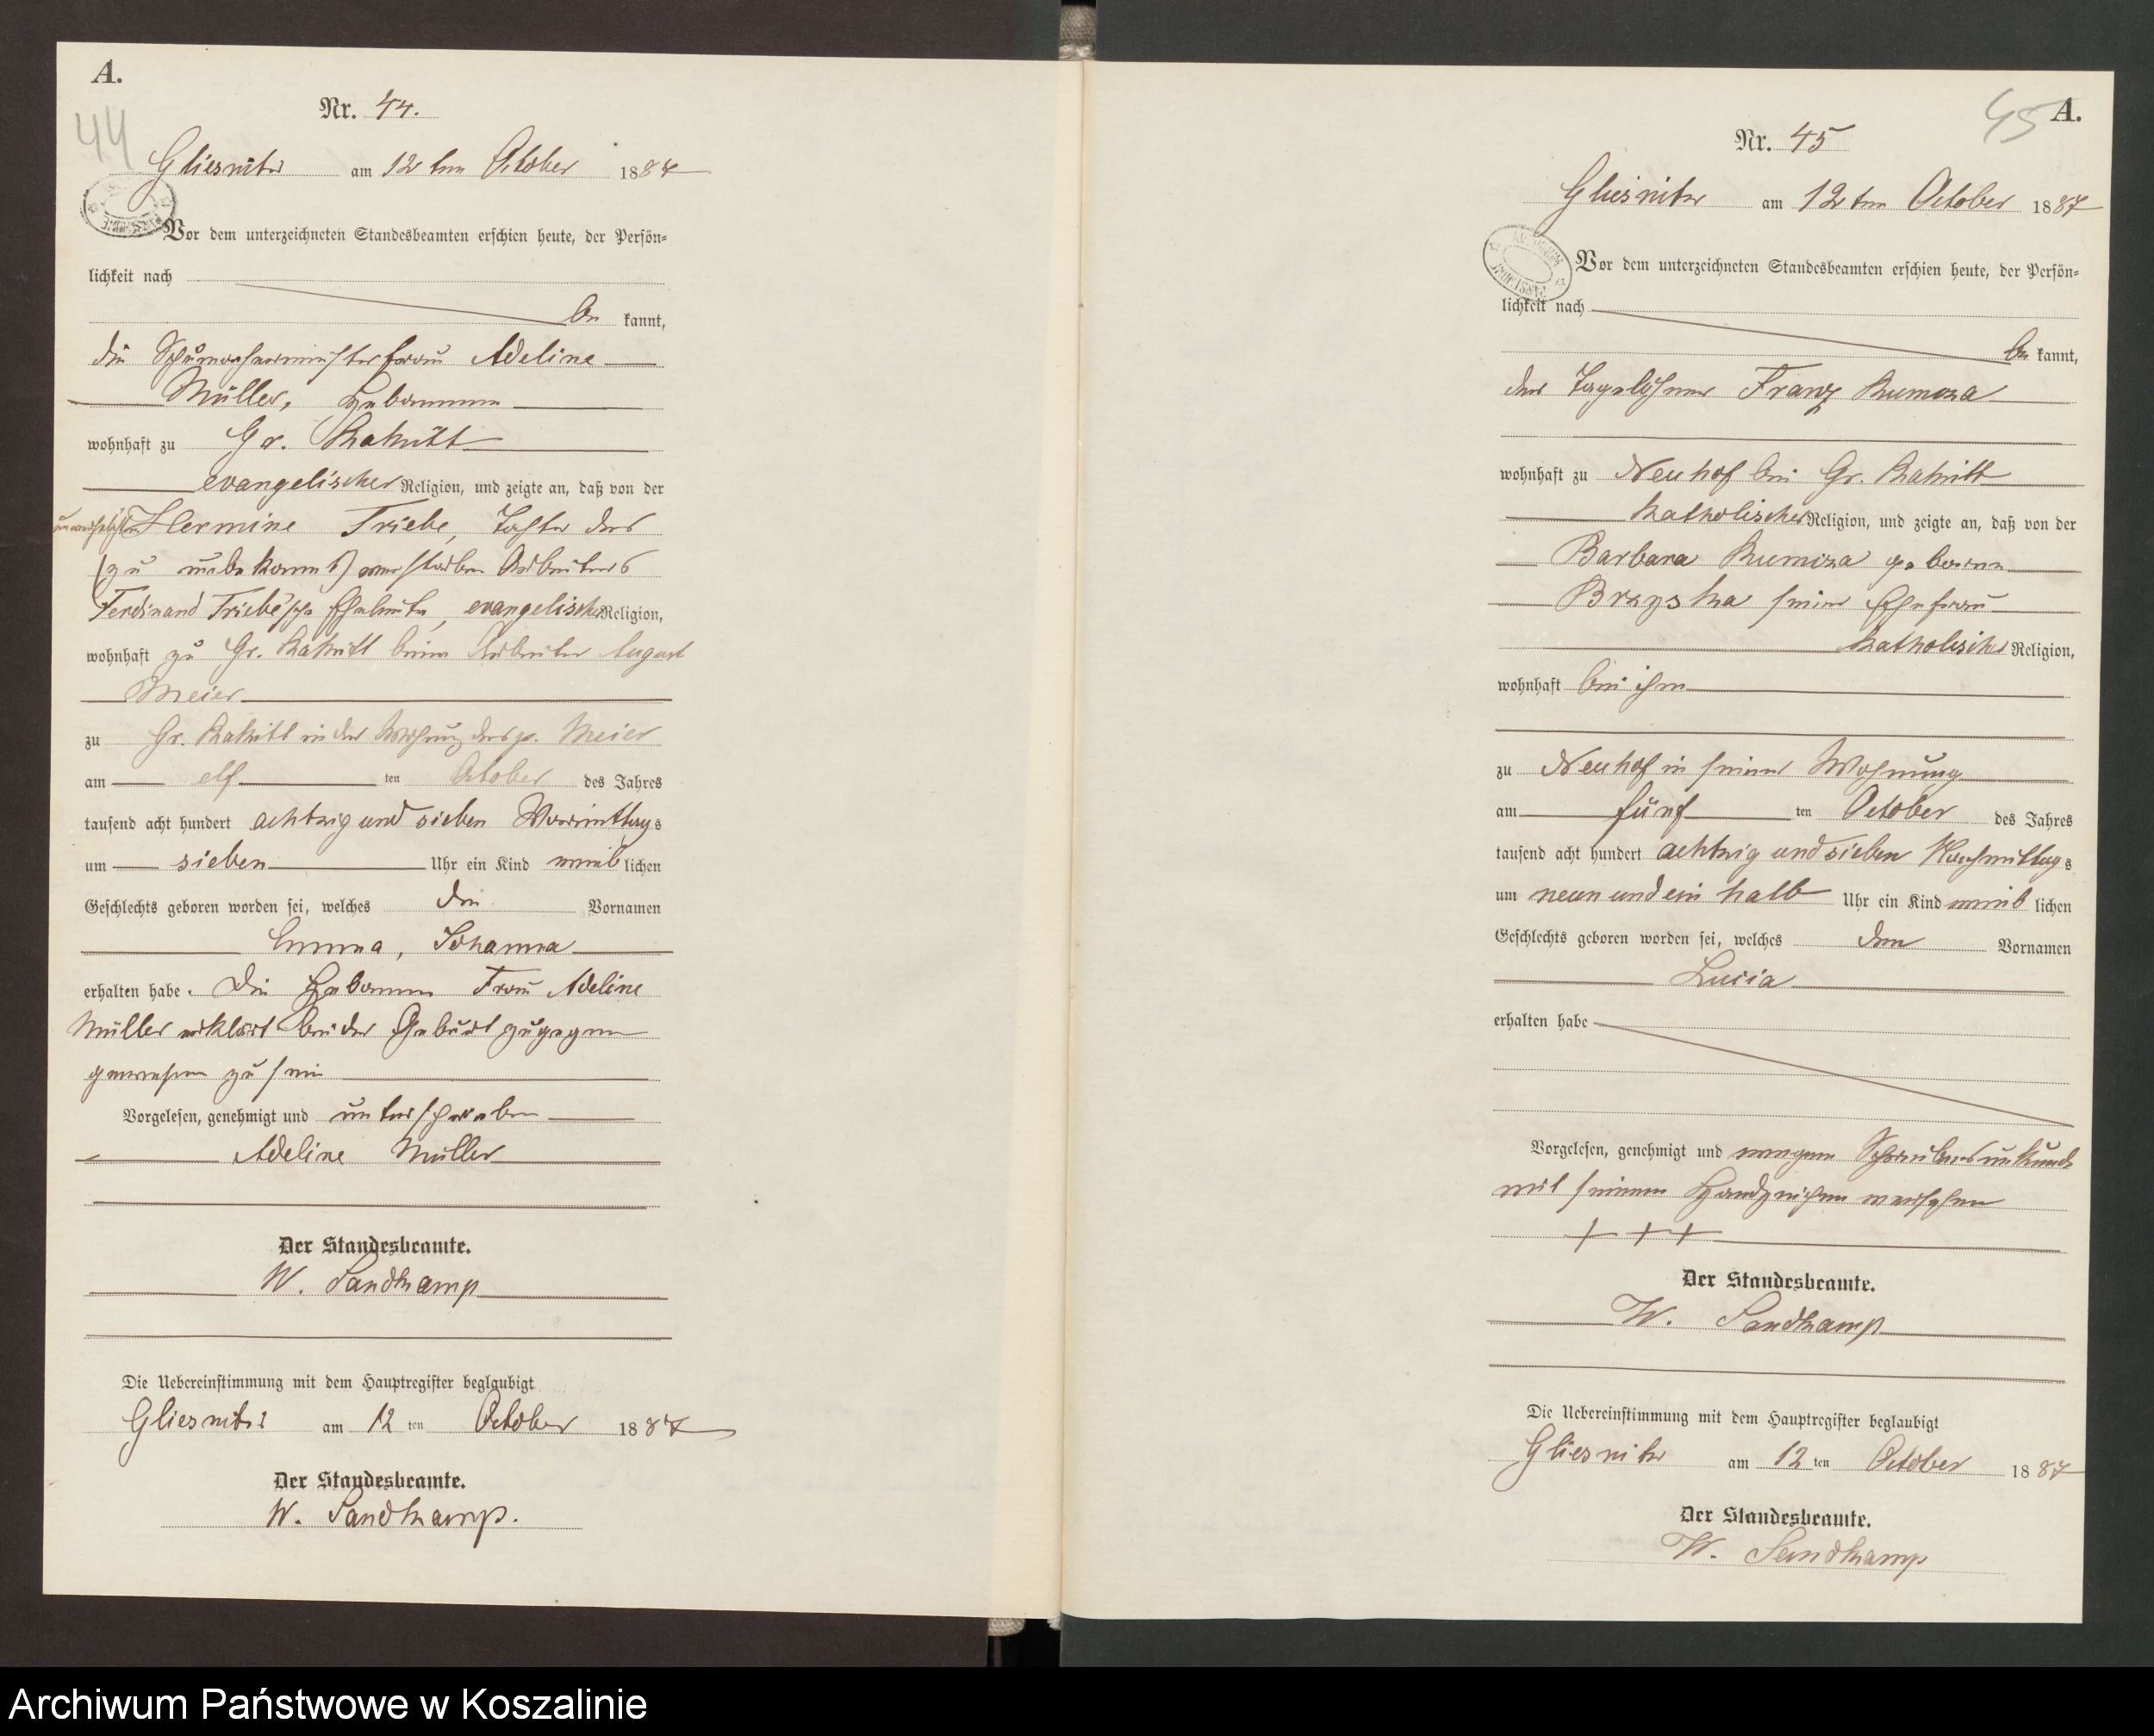 A.
Nr. 44.
44
Gliesnitz am 12 ten October 1887
Vor dem unterzeichneten Standesbeamten erschien heute, der Persön-
lichkeit nach
be kannt,
die Schumachermeisterfrau Adeline
Müller, Hebamme
wohnhaft zu Gr. Rakitt
evangelischer Religion, und zeigte an, daß von der
unverehelichten Hermine Triebe, Tochter der
(zu unbekannt) verstorben Arbeiters
Ferdinand Triebe'sche Eheleute, evangelischer Religion,
wohnhaft zu Gr. Rakitt beim Arbeiter August
Meier
zu Gr. Rakitt in der Wohnung des p. Meier
am elf ten October des Jahres
tausend acht hundert achtzig und sieben Vormittags
um sieben Uhr ein Kind weiblichen
Geschlechts geboren worden sei, welches die Vornamen
Emma, Johanna
erhalten habe. Die Hebamme Frau Adeline
Müller erklärt bei der Geburt zugegen
gewesen zu sein
Vorgelesen, genehmigt und unterschrieben
Adeline Müller
Der Standesbeamte.
W. Sandkamp
Die Uebereinstimmung mit dem Hauptregister beglaubigt
Gliesnitz am 12 ten October 1887
Der Standesbeamte.
W. Sandkamp.
45
A.
Nr. 45
Gliesnitz am 12 ten October 1887
Vor dem unterzeichneten Standesbeamten erschien heute, der Persön-
lichkeit nach
be kannt,
der Tagelöhner Franz Rumoza
wohnhaft zu Neuhof bei Gr. Rakitt
katholischer Religion, und zeigte an, daß von der
Barbara Rumoza geborene
Brzyska seiner Ehefrau
katholischer Religion,
wohnhaft bei ihm
zu Neuhof in seiner Wohnung
am fünf ten October des Jahres
tausend acht hundert achtzig und sieben Nachmittags
um neun und ein halb Uhr ein Kind weiblichen
Geschlechts geboren worden sei, welches den Vornamen
Lucia
erhalten habe
Vorgelesen, genehmigt und wegen Schreibensunkunde
mit seinem Handzeichen versehen
+ + +
Der Standesbeamte.
W. Sandkamp
Die Uebereinstimmung mit dem Hauptregister beglaubigt
Gliesnitz am 12 ten October 1887
Der Standesbeamte.
W. Sandkamp
Archiwum Państwowe w Koszalinie